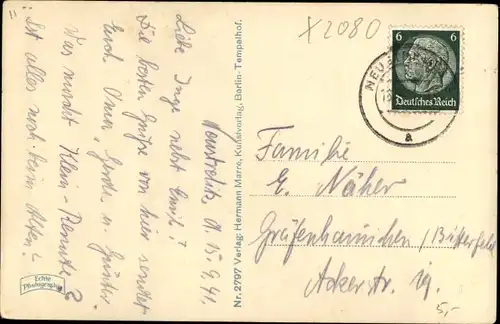 X2080
6 6
Deutsches Reich
NEUS
a
Neustrelitz, d. 15.9.41.
Liebe Inge nebst
Die besten Grüße von hier sendet
Euch Oma, Gerda u. Günter
Was macht Klein-
Ist alles noch beim Alten?
Echte
Photographie
Nr. 2797 Verlag: Hermann Marre, Kunstverlag, Berlin-Tempelhof.
Familie
E. Näher
Gräfenhainichen / Bitterfeld
Ackerstr.
5,-